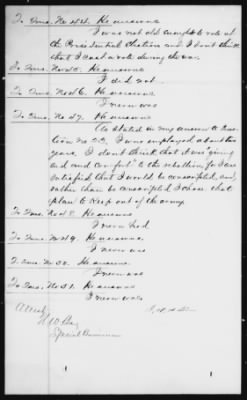 To Ques. No 44. He answers
I was not old enough to vote at
the Presidential Election and I dont think
that I cast a vote during the war.
To Ques. No 45. He answers
I did not.
To Ques. No 46. He answers
I never was
To Ques. No 47. He answers
As stated in my answer to Ques-
tion No 23. I was employed about two
years. I dont think that it was "giving
aid and comfort" to the rebellion, for I was
satisfied that I would be conscripted, and
rather than be conscripted I chose that
plan to keep out of the army.
To Ques. No 48. He answers
I never had
To Ques. No 49. He answers.
I never was
To Ques. No 50. He answers.
I never was
To Ques. No 51. He answers
I never was
Attest
Special Commissioner